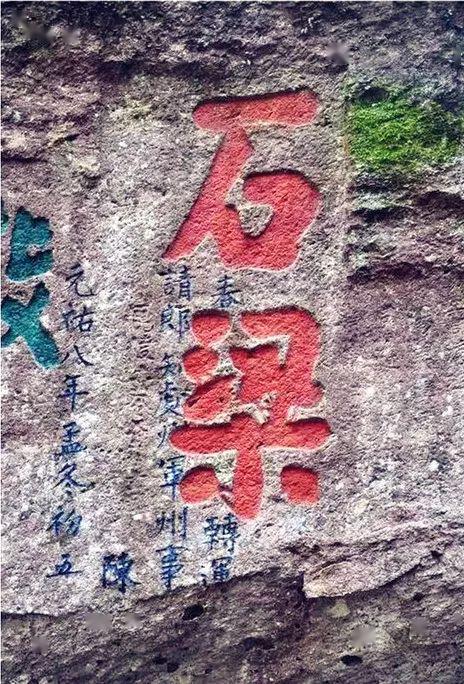 石梁
春 轉運
請郎 知處州軍州事
陳
元祐八年孟冬初五